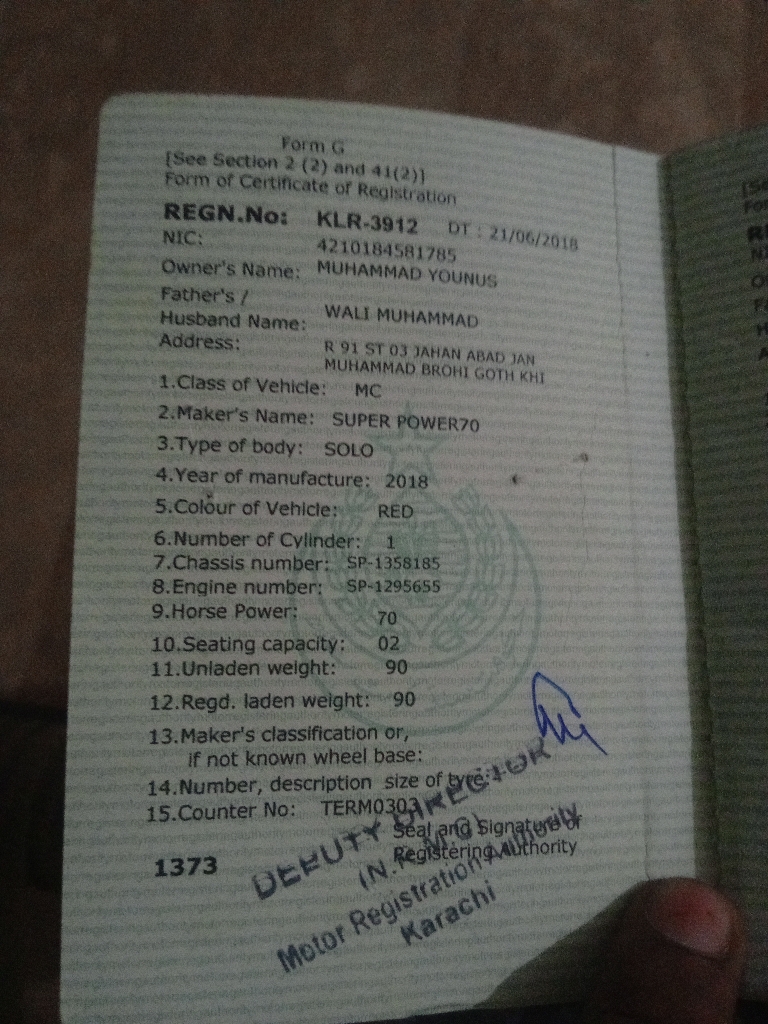 Form G
[See Section 2 (2) and 41(2)]
Form of Certificate of Registration
REGN.No: KLR-3912 DT : 21/06/2018
NIC: 4210184581785
Owner's Name: MUHAMMAD YOUNUS
Father's /
Husband Name: WALI MUHAMMAD
Address: R 91 ST 03 JAHAN ABAD JAN
MUHAMMAD BROHI GOTH KHI
1.Class of Vehicle: MC
2.Maker's Name: SUPER POWER70
3.Type of body: SOLO
4.Year of manufacture: 2018
5.Colour of Vehicle: RED
6.Number of Cylinder: 1
7.Chassis number: SP-1358185
8.Engine number: SP-1295655
9.Horse Power: 70
10.Seating capacity: 02
11.Unladen weight: 90
12.Regd. laden weight: 90
13.Maker's classification or,
if not known wheel base:
14.Number, description size of tyre:
15.Counter No: TERM0303
Seal and Signature of
Registering Authority
1373
DEPUTY DIRECTOR
Motor Registration Authority
Karachi